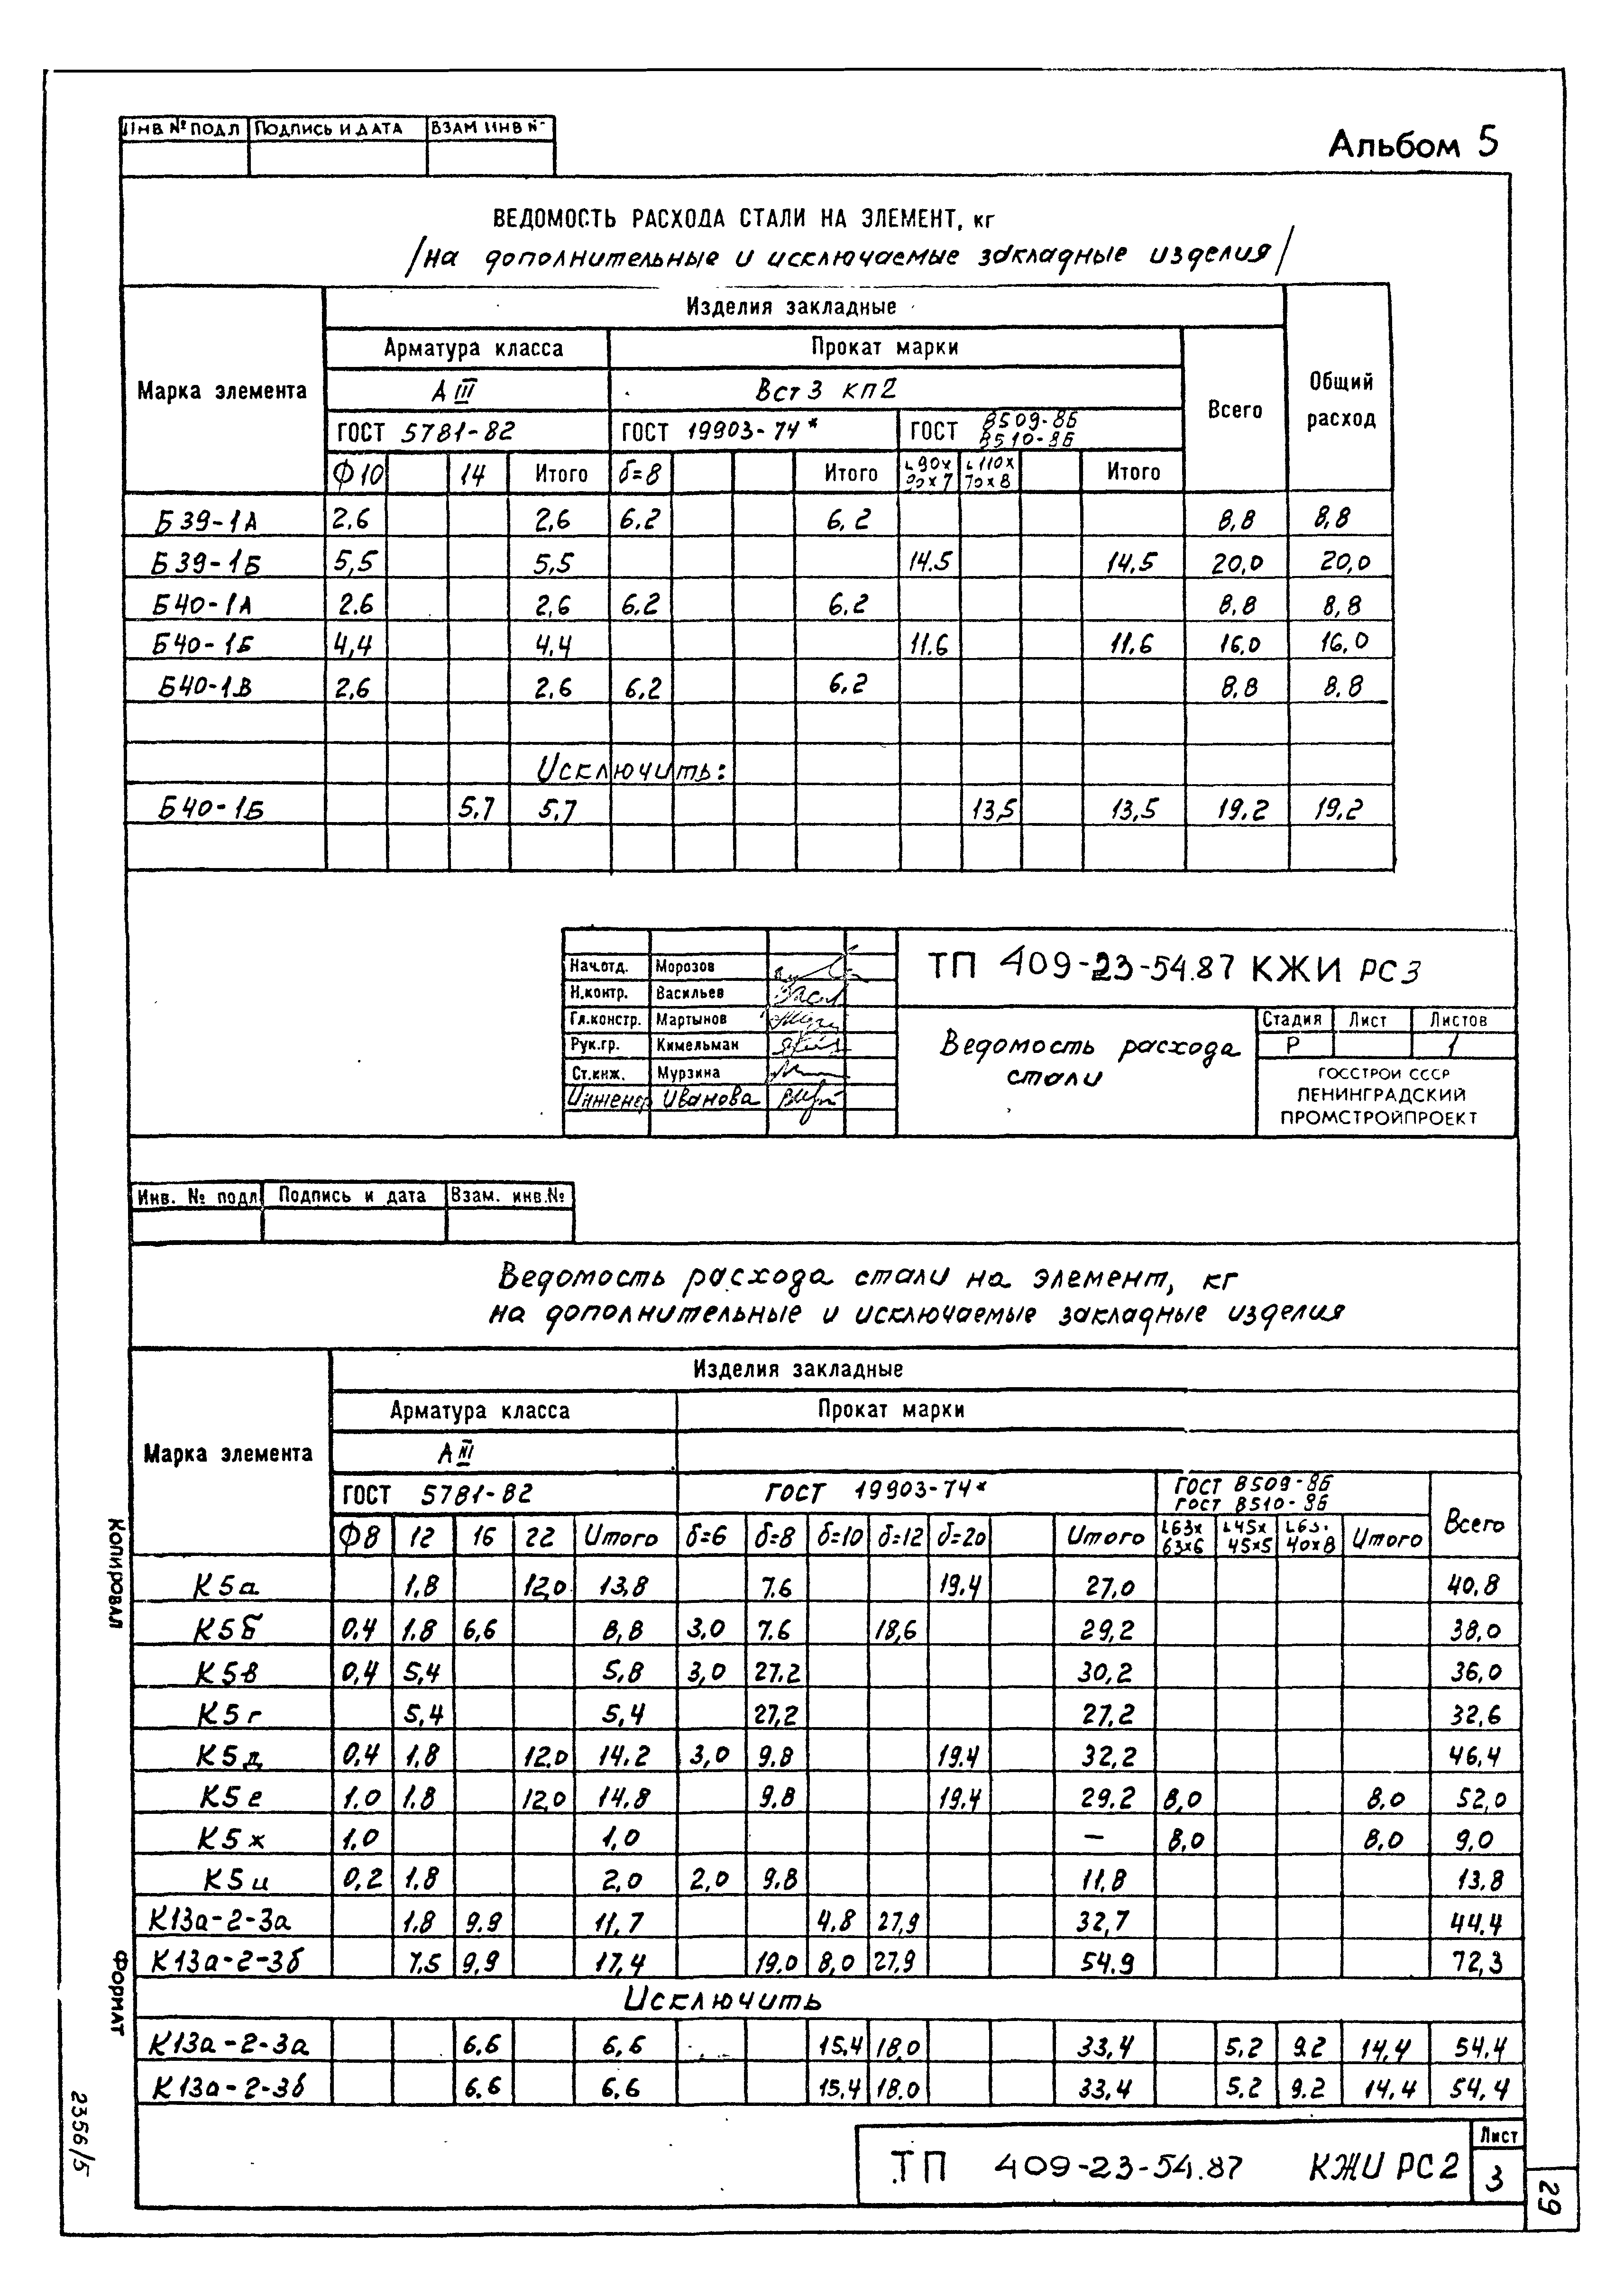 Инв № подл Подпись и дата Взам инв №
Альбом 5
ВЕДОМОСТЬ РАСХОДА СТАЛИ НА ЭЛЕМЕНТ, кг
/на дополнительные и исключаемые закладные изделия/
Марка элемента Изделия закладные Общий расход
Арматура класса Прокат марки Всего
А III Вст3 кп2
ГОСТ 5781-82 ГОСТ 19903-74* ГОСТ 8509-86 8510-86
Ф10 14 Итого δ=8 Итого L90х90х7 L110х70х8 Итого
Б39-1А 2,6 2,6 6.2 6,2 8,8 8,8
Б39-1Б 5,5 5,5 14.5 14,5 20,0 20,0
Б40-1А 2.6 2,6 6.2 6.2 8.8 8,8
Б40-1Б 4,4 4.4 11.6 11,6 16,0 16,0
Б40-1В 2,6 2.6 6,2 6,2 8.8 8.8
Исключить:
Б40-1Б 5,7 5,7 13,5 13,5 19,2 19,2
Нач.отд. Морозов
Н.контр. Васильев
Гл.констр. Мартынов
Рук.гр. Кимельман
Ст.инж. Мурзина
Инженер Иванова
ТП 409-23-54.87 КЖИ РС3
Ведомость расхода
стали
Стадия Лист Листов
Р 1
ГОССТРОЙ СССР
ЛЕНИНГРАДСКИЙ
ПРОМСТРОЙПРОЕКТ
Инв. № подл Подпись и дата Взам. инв.№
Ведомость расхода стали на элемент, кг
на дополнительные и исключаемые закладные изделия
Марка элемента Изделия закладные
Арматура класса Прокат марки
А III
ГОСТ 5781-82 ГОСТ 19903-74* ГОСТ 8509-86 ГОСТ 8510-86 Всего
Ф8 12 16 22 Итого δ=6 δ=8 δ=10 δ=12 δ=20 Итого L63х63х6 L45х45х5 L63х40х8 Итого
К5а 1.8 12,0 13,8 7.6 19.4 27,0 40,8
К5б 0,4 1.8 6,6 8,8 3,0 7.6 18,6 29,2 38,0
К5в 0,4 5,4 5,8 3,0 27.2 30,2 36,0
К5г 5,4 5,4 27,2 27,2 32,6
К5д 0,4 1,8 12.0 14.2 3,0 9.8 19.4 32,2 46,4
К5е 1.0 1.8 12,0 14.8 9.8 19.4 29.2 8,0 8.0 52,0
К5ж 1.0 1,0 — 8,0 8,0 9,0
К5и 0,2 1,8 2,0 2,0 9.8 11,8 13,8
К13а-2-3а 1.8 9.9 11,7 4.8 27,9 32,7 44,4
К13а-2-3б 7.5 9,9 17,4 19.0 8,0 27,9 54.9 72,3
Исключить
К13а-2-3а 6.6 6,6 15,4 18.0 33,4 5,2 9.2 14,4 54,4
К13а-2-3б 6.6 6.6 15,4 18.0 33,4 5.2 9.2 14.4 54,4
ТП 409-23-54.87 КЖИ РС2
Лист
3
Копировал
Формат
2356/5
29